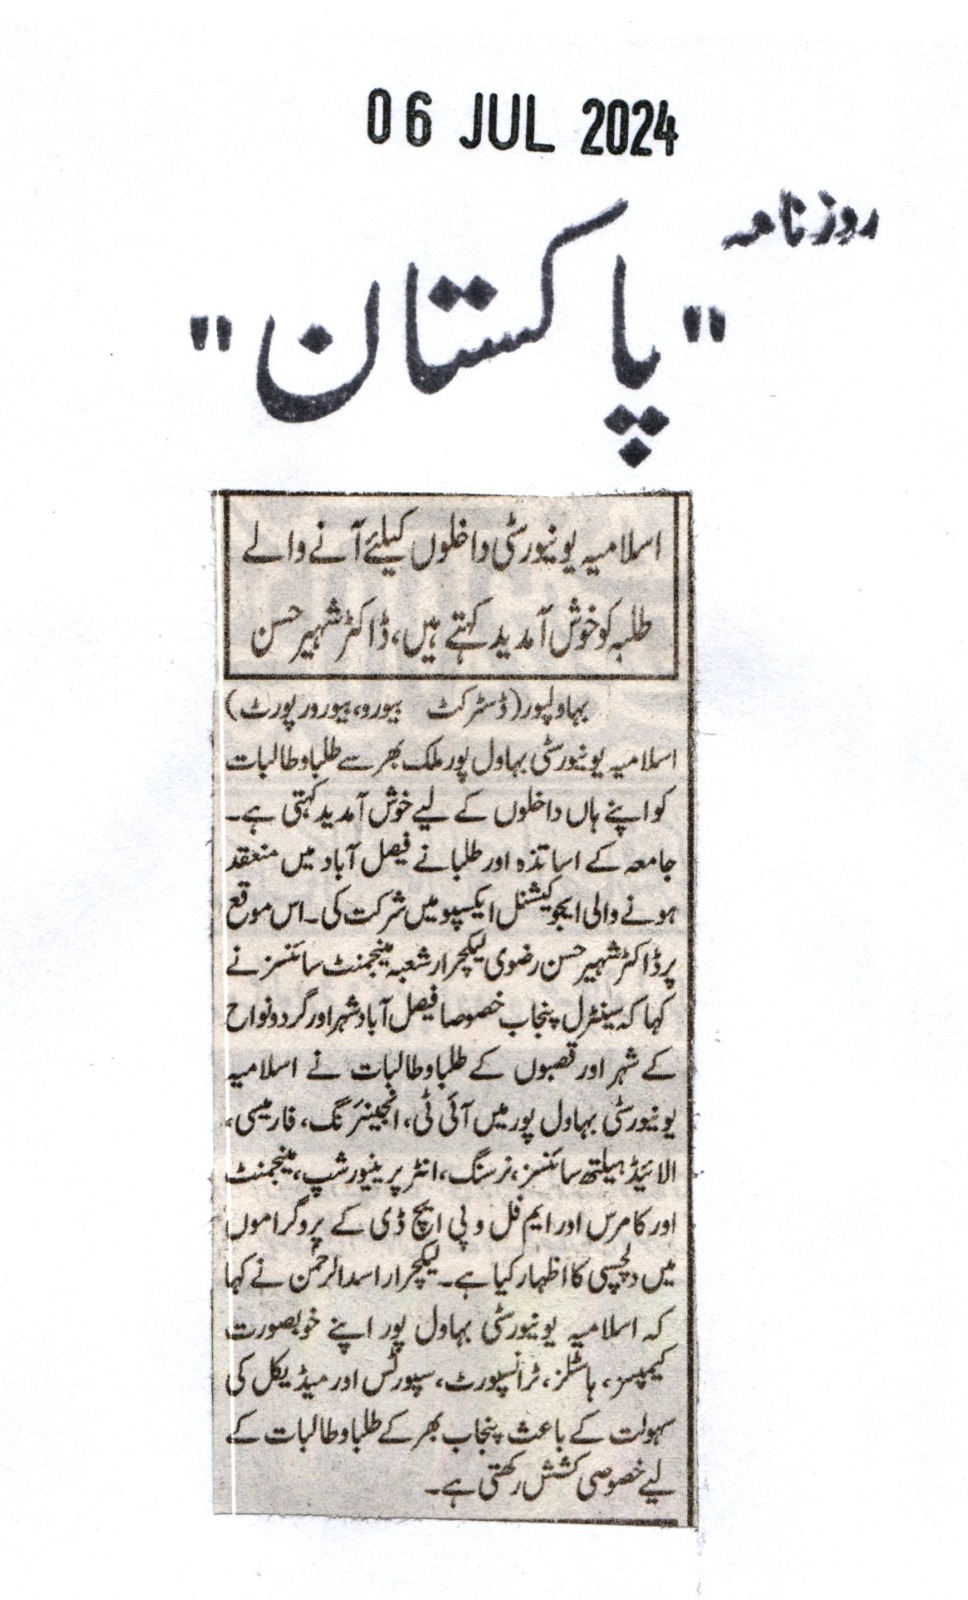 06 JUL 2024
روزنامہ
"پاکستان"
اسلامیہ یونیورسٹی داخلوں کیلئے آنے والے
طلبہ کو خوش آمدید کہتے ہیں، ڈاکٹر شہیر حسن
بہاولپور (ڈسٹرکٹ بیورو، بیورو رپورٹ)
اسلامیہ یونیورسٹی بہاول پور ملک بھر سے طلبا و طالبات
کو اپنے ہاں داخلوں کے لیے خوش آمدید کہتی ہے۔
جامعہ کے اساتذہ اور طلبا نے فیصل آباد میں منعقد
ہونے والی ایجوکیشنل ایکسپو میں شرکت کی۔ اس موقع
پر ڈاکٹر شہیر حسن رضوی لیکچرار شعبہ مینجمنٹ سائنسز نے
کہا کہ سینٹرل پنجاب خصوصا فیصل آباد شہر اور گردونواح
کے شہر اور قصبوں کے طلبا و طالبات نے اسلامیہ
یونیورسٹی بہاول پور میں آئی ٹی، انجینئرنگ، فارمیسی،
الائیڈ ہیلتھ سائنسز، نرسنگ، انٹر پرینیورشپ، مینجمنٹ
اور کامرس اور ایم فل و پی ایچ ڈی کے پروگراموں
میں دلچسپی کا اظہار کیا ہے۔ لیکچرار اسد الرحمٰن نے کہا
کہ اسلامیہ یونیورسٹی بہاول پور اپنے خوبصورت
کیمپسز، ہاسٹلز، ٹرانسپورٹ، سپورٹس اور میڈیکل کی
سہولت کے باعث پنجاب بھر کے طلبا و طالبات کے
لیے خصوصی کشش رکھتی ہے۔